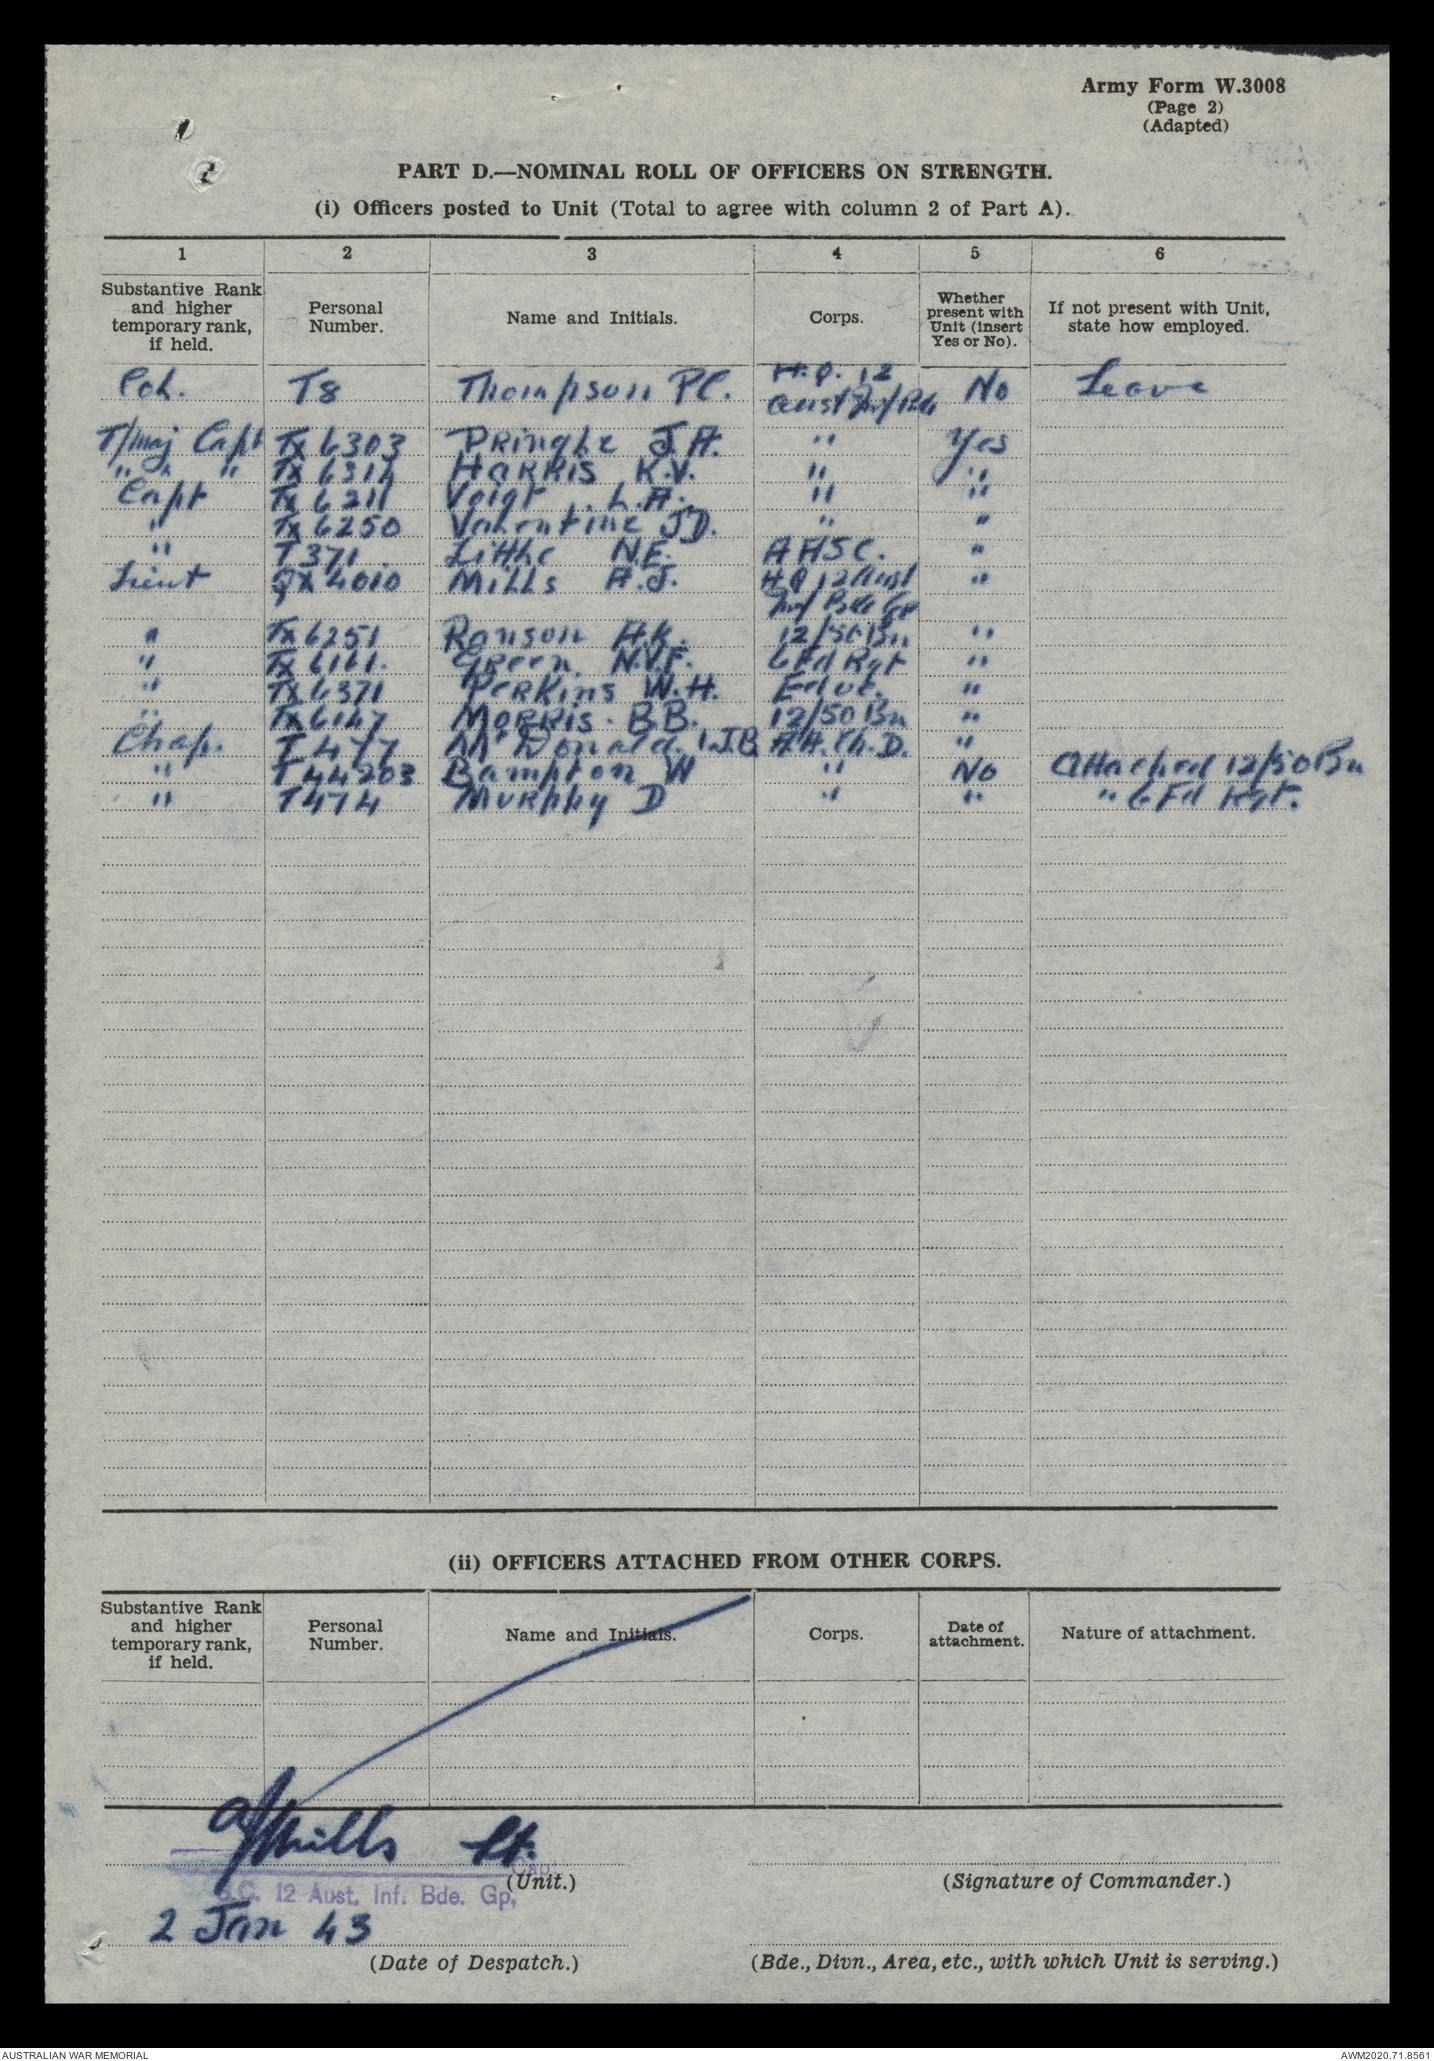 Army Form W.3008
(Page 2)
(Adapted)
PART D.—NOMINAL ROLL OF OFFICERS ON STRENGTH.
(i) Officers posted to Unit (Total to agree with column 2 of Part A).
1 2 3 4 5 6
Substantive Rank and higher temporary rank, if held. Personal Number. Name and Initials. Corps. Whether present with Unit (insert Yes or No). If not present with Unit, state how employed.
Col. T8 Thompson P.C. H.Q. 12 Aust Inf Bde No Leave
T/Maj Capt Tx 6303 PRingle J.A. " Yes
" " " Tx 6314 HARRIS K.V. " "
Capt Tx 6211 Voigt L.A. " "
" Tx 6250 Valentine J.D. " "
" T 371 Little N.E. AASC. "
Lieut QX 4010 Mills A.J. H.Q 12 Aust Inf Bde Gp "
" Tx 6251 Ronson A.K. 12/50 Bn "
" Tx 6161. Green N.V.F. 6 Fd Rgt "
" Tx 6371 PeRKins W.H. Educ. "
" Tx 6147 MORRIS. B.B. 12/50 Bn "
Chap. T 477 McDonald. I.J.B. A.A. Ch. D. "
" T 44203 Bampton W " No Attached 12/50 Bn
" T 474 MuRphy D " " " 6 Fd Rgt.
(ii) OFFICERS ATTACHED FROM OTHER CORPS.
Substantive Rank and higher temporary rank, if held. Personal Number. Name and Initials. Corps. Date of attachment. Nature of attachment.
AJMills Lt.
Cap
(Unit.) (Signature of Commander.)
S.C. 12 Aust. Inf. Bde. Gp,
2 Jan 43
(Date of Despatch.) (Bde., Divn., Area, etc., with which Unit is serving.)
AUSTRALIAN WAR MEMORIAL AWM2020.71.8561